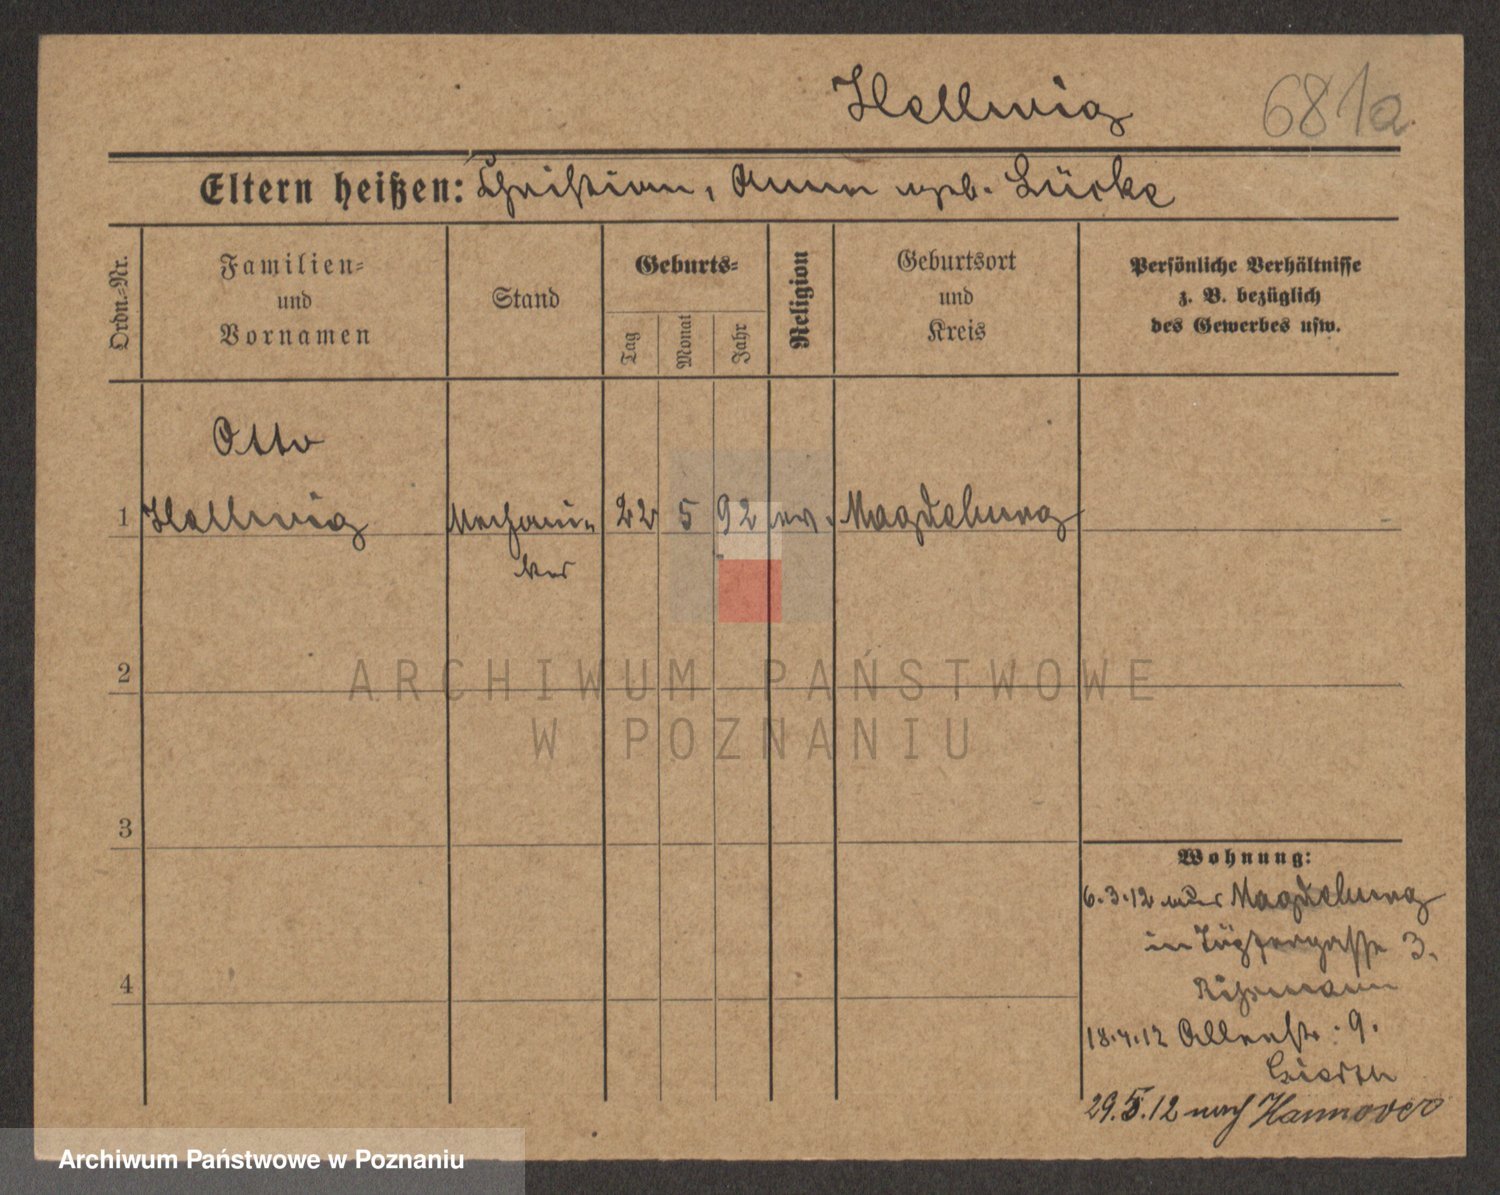 Hellwig 681a.
Eltern heißen: Christian, Anna geb. Lücke
Ordn.-Nr.
Familien-
und
Vornamen
Stand
Geburts-
Tag
Monat
Jahr
Religion
Geburtsort
und
Kreis
Persönliche Verhältnisse
z. B. bezüglich
des Gewerbes usw.
Otto
1 Hellwig Mechani- 22 5 92 ev. Magdeburg
ker
2
ARCHIWUM PAŃSTWOWE
W POZNANIU
3
Wohnung:
6.3.12 aus Magdeburg
in Töpfergasse 3.
4
18.4.12 9.
29.5.12 nach Hannover
Archiwum Państwowe w Poznaniu